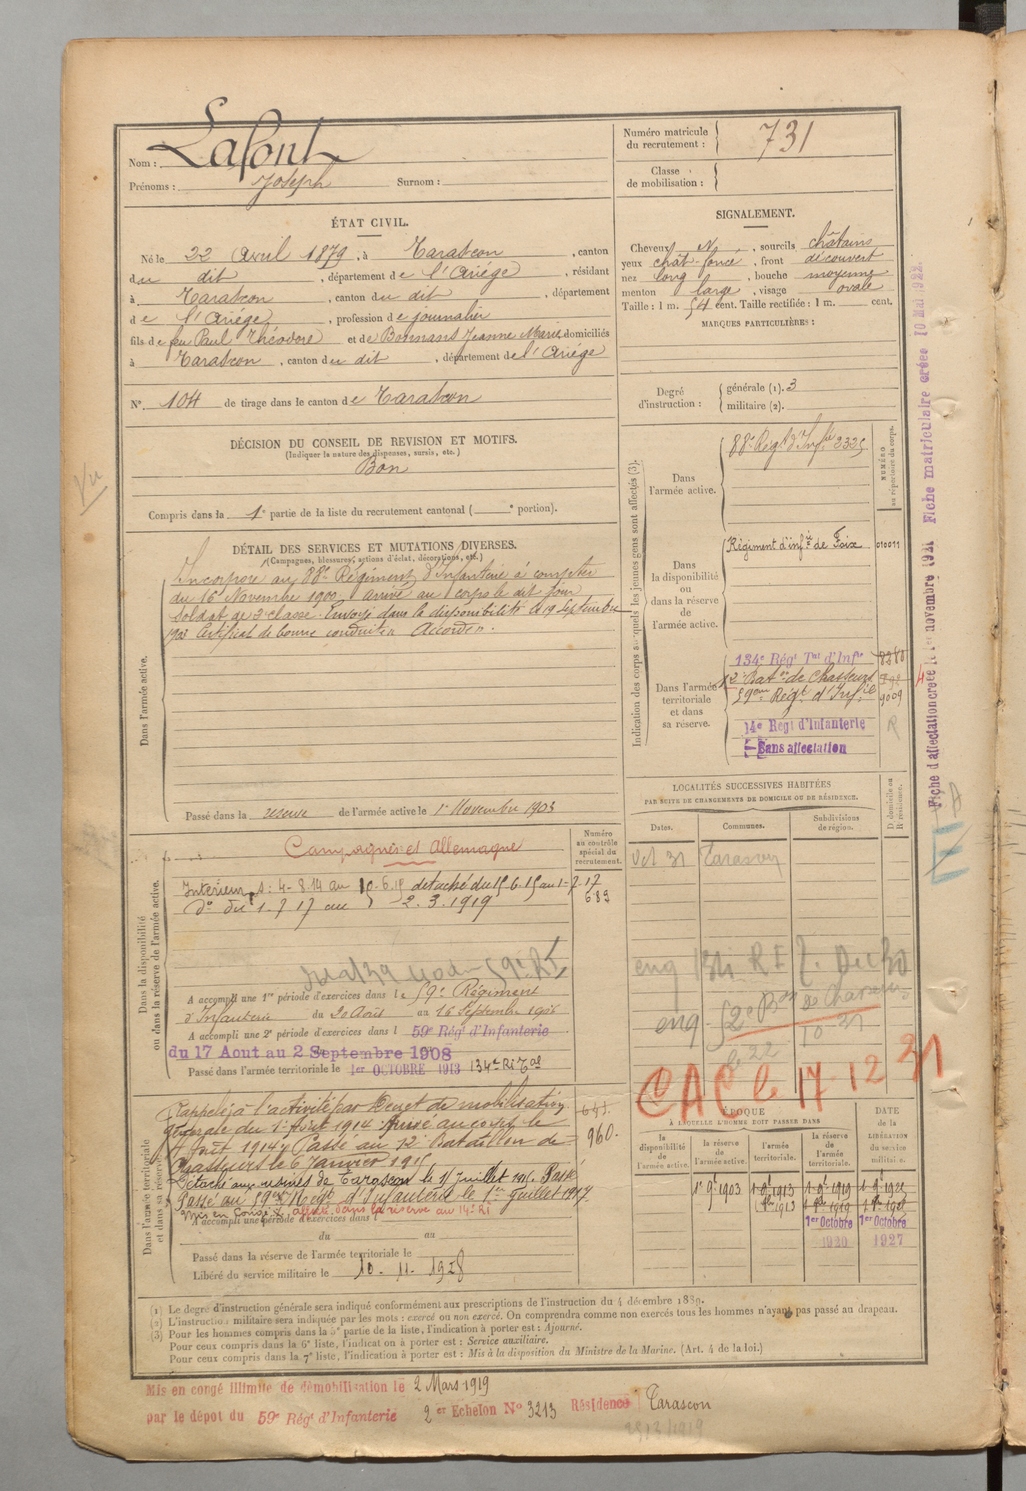 Nom : Lafont
Prénoms : Joseph Surnom :
Numéro matricule du recrutement : 731
Classe de mobilisation :
ÉTAT CIVIL.
Né le 22 avril 1879, à Tarascon, canton
du dit, département de l'Ariège, résidant
à Tarascon, canton du dit, département
de l'Ariège, profession de journalier
fils de feu Paul Théodore et de Bonnans Jeanne Marie, domiciliés
à Tarascon, canton du dit, département de l'Ariège
N° 104 de tirage dans le canton de Tarascon
DÉCISION DU CONSEIL DE REVISION ET MOTIFS.
(Indiquer la nature des dispenses, sursis, etc.)
Bon
Compris dans la 1e partie de la liste du recrutement cantonal ( e portion).
SIGNALEMENT.
Cheveux N, sourcils châtains
yeux chât-foncé, front découvert
nez long, bouche moyenne
menton large, visage ovale
Taille : 1 m. 54 cent. Taille rectifiée : 1 m. cent.
MARQUES PARTICULIÈRES :
Degré d'instruction : générale (1). 3
militaire (2).
DÉTAIL DES SERVICES ET MUTATIONS DIVERSES.
(Campagnes, blessures, actions d'éclat, décorations, etc.)
Dans l'armée active.
Incorporé au 88e Régiment d'Infanterie à compter
du 16 Novembre 1900, arrivé au corps le dit jour
soldat de 2e classe. Envoyé dans la disponibilité le 19 septembre
1903 Certificat de bonne conduite Accordé.
Passé dans la réserve de l'armée active le 1er Novembre 1903
Indication des corps auxquels les jeunes gens sont affectés (3).
NUMÉRO au répertoire du corps.
Dans l'armée active.
88e Régt d'Infie 2325
Dans la disponibilité ou dans la réserve de l'armée active.
Régiment d'infie de Foix 010011
Dans l'armée territoriale et dans sa réserve.
134e Régt Tal d'Infie 8280
12e Baton de Chasseurs
59ème Régt d'Infie 9009
14e Regt d'Infanterie R
Sans affectation
Fiche d'affectation créée le 1er novembre 1921 Fiche matriculaire créée 10 Mai 1922
Vu
LOCALITÉS SUCCESSIVES HABITÉES
PAR SUITE DE CHANGEMENTS DE DOMICILE OU DE RÉSIDENCE.
Dates. Communes. Subdivisions de région. D. domicile ou R. résidence.
Oct 31 Tarascon
CAC le 17 12 31
Dans la disponibilité ou dans la réserve de l'armée active.
Numéro au contrôle spécial du recrutement.
Campagnes et Allemagne
Intérieur : 4-8-14 au 10-6-15 détaché du 15.6.15 au 1-7-17
do du 1.7.17 au 2.3.1919
683
A accompli une 1re période d'exercices dans le 59e Régiment
d'Infanterie du 20 Août au 16 Septembre 1906
A accompli une 2e période d'exercices dans l 59e Régt d'Infanterie
du 17 Aout au 2 Septembre 1908
Passé dans l'armée territoriale le 1er OCTOBRE 1913 134e Ri Tal
Dans l'armée territoriale et dans sa réserve.
Rappelé à l'activité par Décret de mobilisation
générale du 1er Août 1914 Arrivé au corps le
4 Août 1914. Passé au 12e Bataillon de
Chasseurs le 6 Janvier 1915
Détaché aux usines de Tarascon le 15 Juillet 1915 Passé
Passé au 59e Régt d'Infanterie le 1er Juillet 1917
960.
A accompli une période d'exercices dans l
du au
Passé dans la réserve de l'armée territoriale le
Libéré du service militaire le 10 - 11 - 1928
ÉPOQUE
A LAQUELLE L'HOMME DOIT PASSER DANS
la disponibilité de l'armée active. la réserve de l'armée active. l'armée territoriale. la réserve de l'armée territoriale.
DATE de la LIBÉRATION du service militaire.
1er 9bre 1903 1er 9bre 1913 1er 9bre 1919
1er Octobre 1920 1er Octobre 1927
(1) Le degré d'instruction générale sera indiqué conformément aux prescriptions de l'instruction du 4 décembre 1889.
(2) L'instruction militaire sera indiquée par les mots : exercé ou non exercé. On comprendra comme non exercés tous les hommes n'ayant pas passé au drapeau.
(3) Pour les hommes compris dans la 5e partie de la liste, l'indication à porter est : Ajourné.
Pour ceux compris dans la 6e liste, l'indication à porter est : Service auxiliaire.
Pour ceux compris dans la 7e liste, l'indication à porter est : Mis à la disposition du Ministre de la Marine. (Art. 4 de la loi.)
Mis en congé illimité de démobilisation le 2 Mars 1919
par le dépot du 59e Régt d'Infanterie 2er Echelon No 3213 Résidence Tarascon